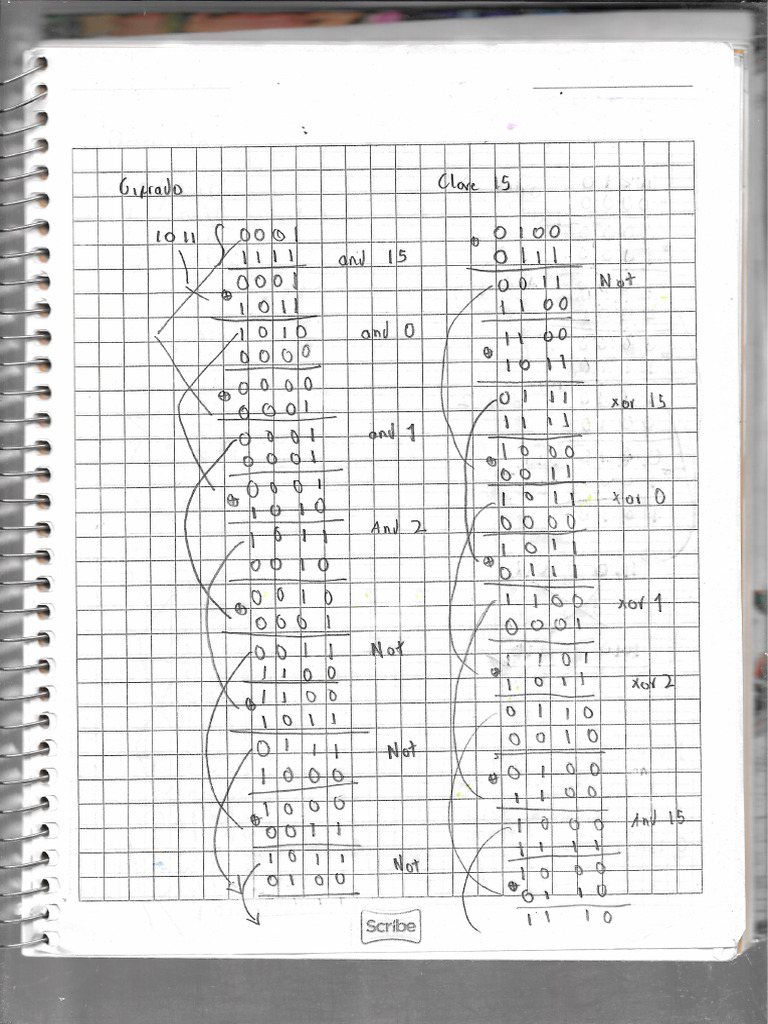 Cifrado
1011 0001
1111 and 15
0001
⊕ 1011
1010 and 0
0000
0000
⊕ 0001
0001 and 1
0001
0001
⊕ 1010
1011 And 2
0010
0010
⊕ 0001
0011 Not
1100
1100
⊕ 1011
0111 Not
1000
1000
⊕ 0011
1011 Not
0100
Clave 15
0100
⊕ 0111
0011 Not
1100
1100
⊕ 1011
0111 xor 15
1111
1000
⊕ 0011
1011 xor 0
0000
1011
⊕ 0111
1100 xor 1
0001
1101
⊕ 1011
0110 xor 2
0010
0100
⊕ 1100
1000 And 15
1111
1000
⊕ 0110
1110
Scribe